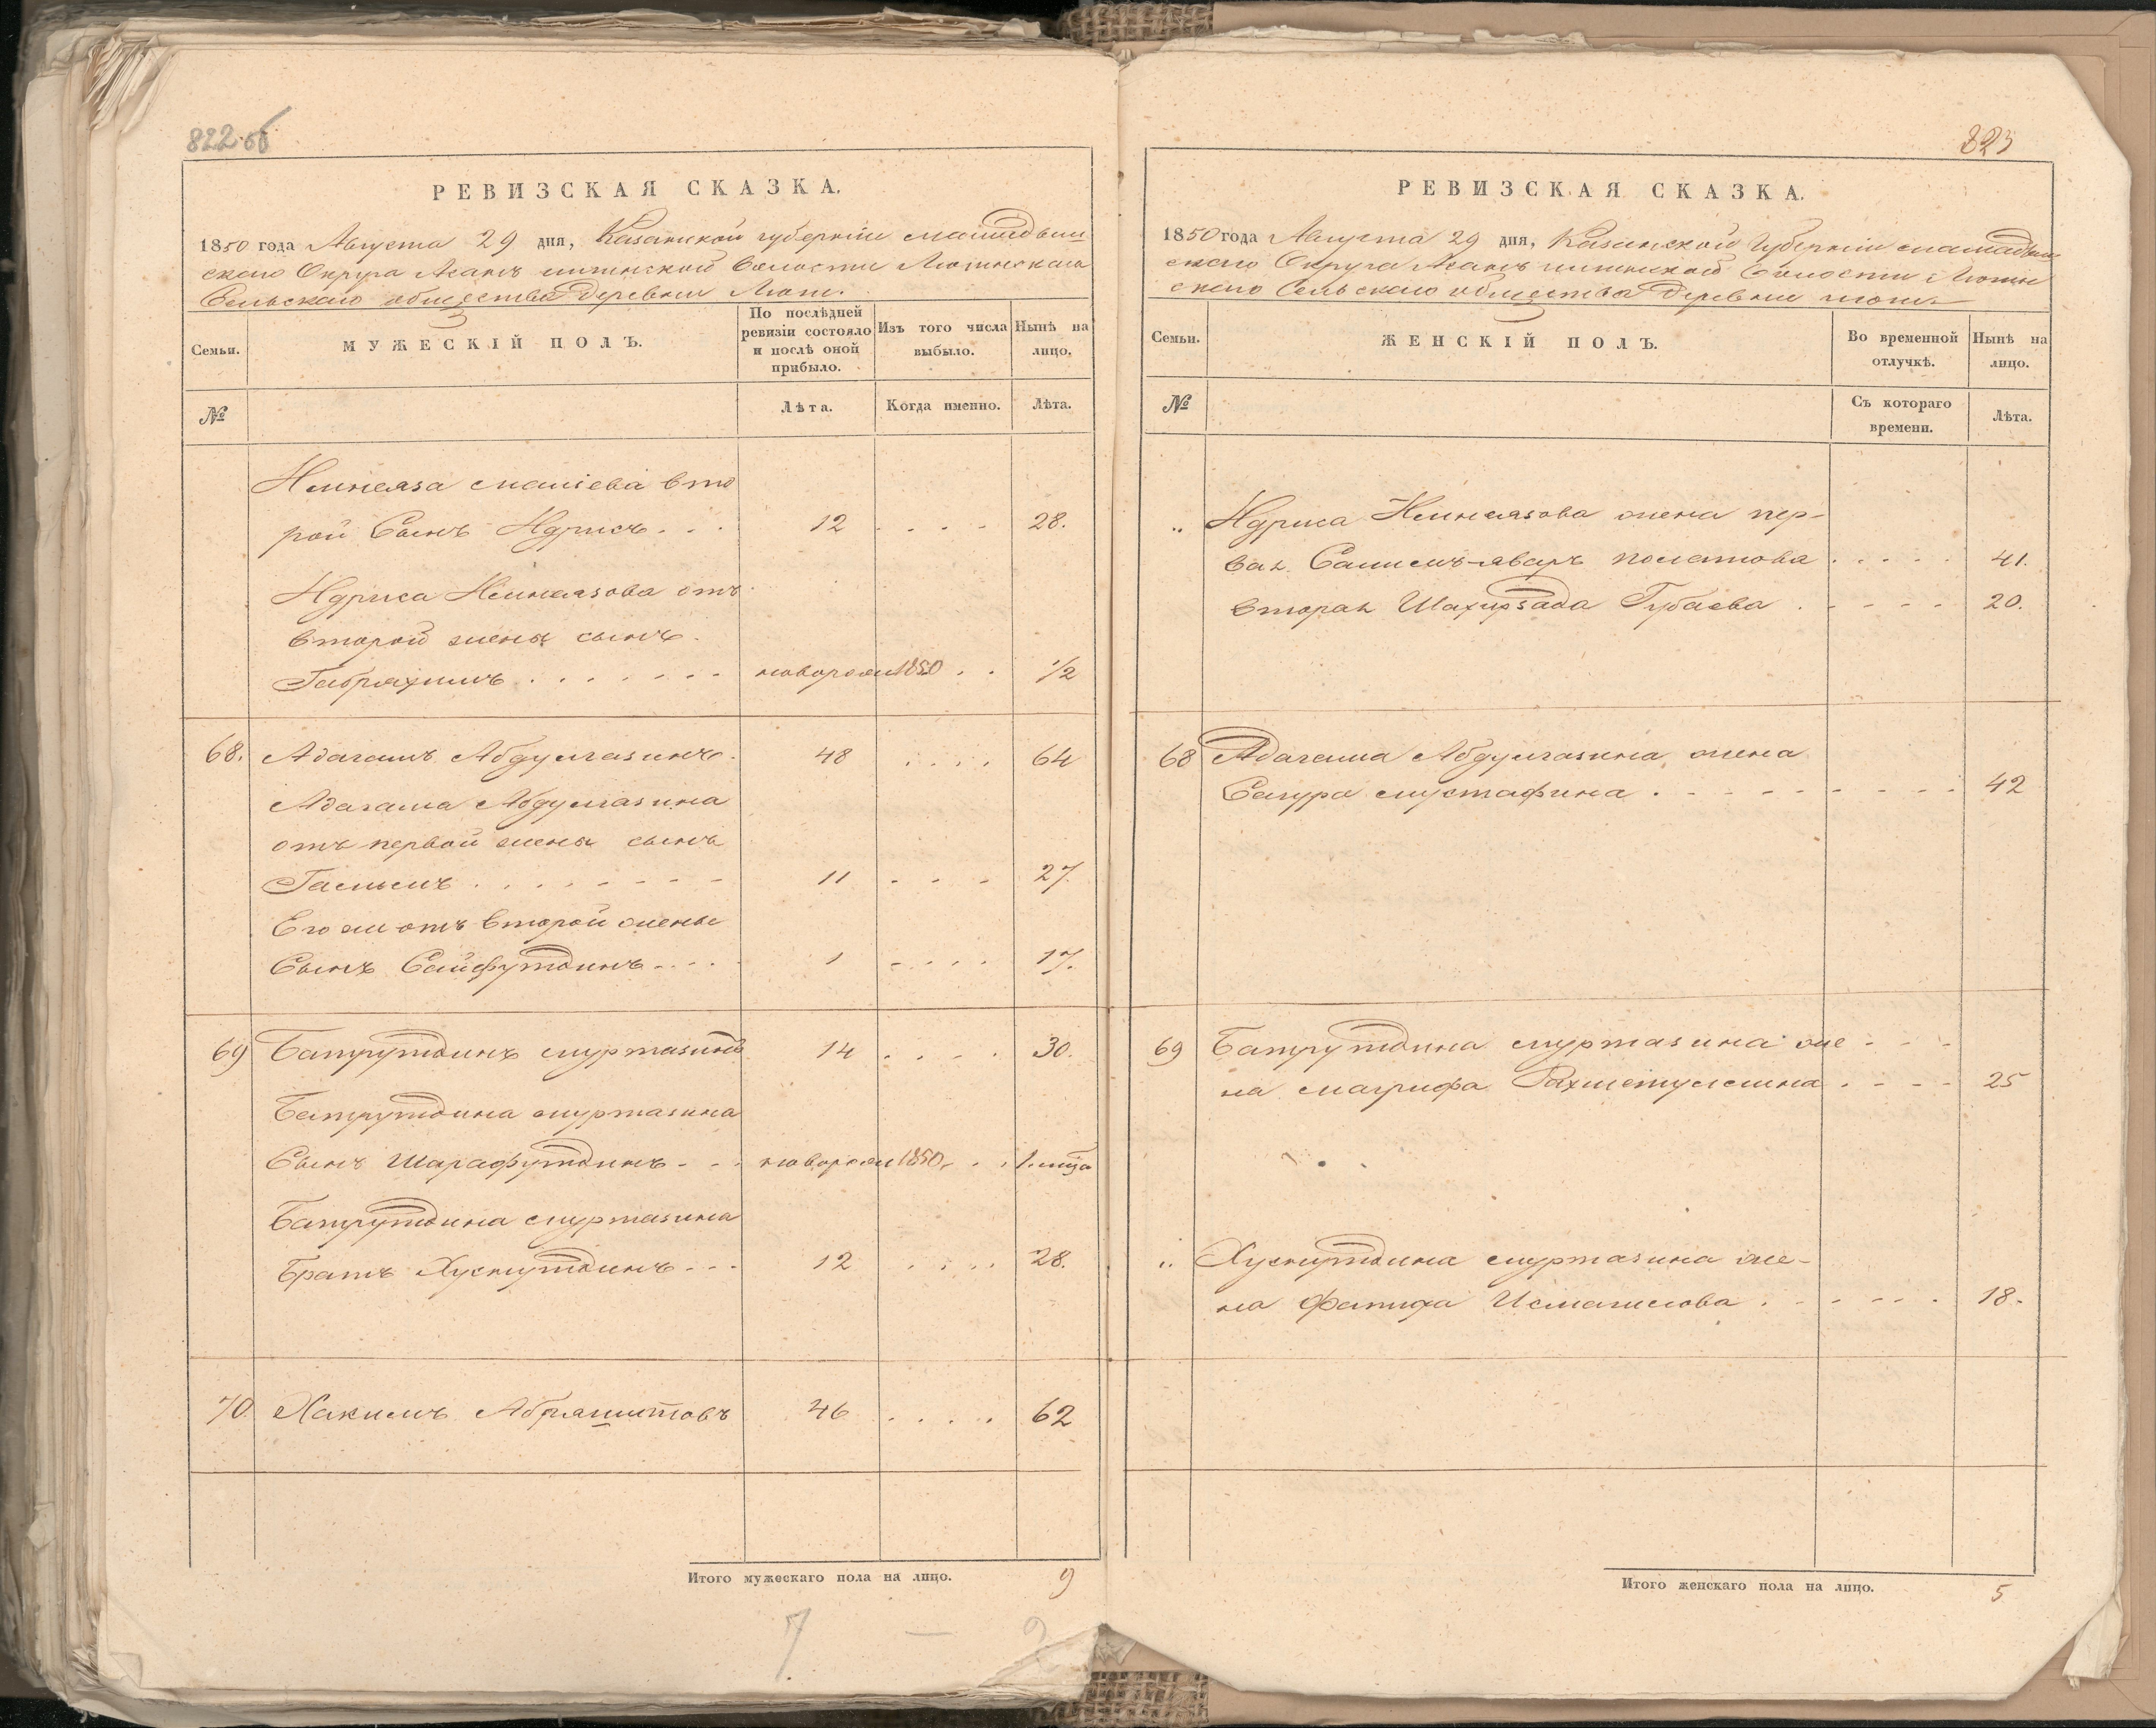 822 об
РЕВИЗСКАЯ СКАЗКА.
1850 года Августа 29 дня, Казанской губерніи мамадыш
скаго Округа
Сельскаго общества Деревни Люти.
Семьи.
МУЖЕСКІЙ ПОЛЪ.
По послѣдней ревизіи состояло и послѣ оной прибыло.
Изъ того числа выбыло.
Нынѣ на лицо.
№
Лѣта.
Когда именно.
Лѣта.
вто
рой Сынъ Идрисъ . . . 12 . . . . 28.
Идриса отъ
второй жены сынъ
Габряхимъ . . . . . . . новорож 1850 . . 1/2
68. Адагамъ Абдулгазинъ. 48 . . . . 64
Адагама Абдулгазина
отъ первой жены сынъ
Гасымъ . . . . . . . . 11 . . . 27.
Его же отъ второй жены
Сынъ Сайфутдинъ . . . . 1 . . . . 17.
69 Батрутдинъ муртазинъ 14 . . . . 30.
Батрутдина муртазина
Сынъ Шарафутдинъ . . . новорож 1850 . . . 1. мца
Батрутдина муртазина
Братъ Хуснутдинъ . . . 12 . . . . 28.
70. Хакимъ Абряшитовъ 46 . . . . 62
Итого мужескаго пола на лицо. 9
7 — 9
823
РЕВИЗСКАЯ СКАЗКА.
1850 года Августа 29 дня, Казанской Губерніи мамадыш
скаго Округа волости Лютин
скаго Сельскаго общества Деревни люти.
Семьи.
ЖЕНСКІЙ ПОЛЪ.
Во временной отлучкѣ.
Нынѣ на лицо.
№
Съ котораго времени.
Лѣта.
„ Идриса жена пер-
вая . . . . . 41.
вторая Губаева . . . . . 20.
68 Адагама Абдулгазина жена
Сагура мустафина . . . . . . . . . 42
69 Батрутдина муртазина же . . .
на магрифа Рахметуллина . . . . 25
„ Хуснутдина муртазина же-
на Фатиха Исмагилова . . . . . . 18.
Итого женскаго пола на лицо. 5